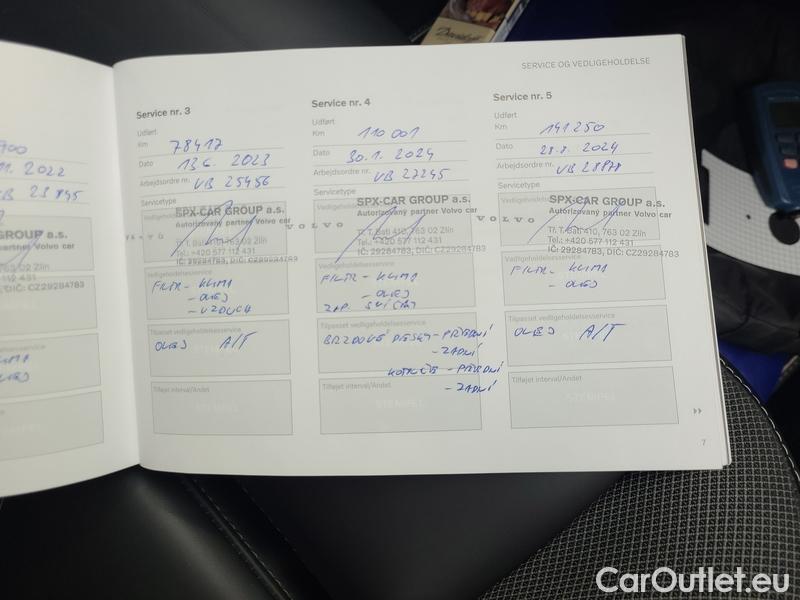 SERVICE OG VEDLIGEHOLDELSE
11. 2022
VB 23 845
GROUP a.s.
partner Volvo car
763 02 Zlín
112 431
DIČ: CZ29284783
KLIMA
OLEJ
Service nr. 3
Udført
Km 78417
Dato 13 6. 2023
Arbejdsordre nr. VB 25456
Servicetype
SPX-CAR GROUP a.s.
Autorizovaný partner Volvo car
Tř. T. Bati 410, 763 02 Zlín
Tel.: +420 577 112 431
IČ: 29284783, DIČ: CZ29284783
Vedligeholdelsesservice
FILTR - KLIMA
- OLEJ
- VZDUCH
Tilpasset vedligeholdelsesservice
OLEJ A/T
Tilføjet interval/Andet
STEMPEL
Service nr. 4
Udført
Km 110 001
Dato 30. 1. 2024
Arbejdsordre nr. VB 27245
Servicetype
SPX-CAR GROUP a.s.
Autorizovaný partner Volvo car
Tř. T. Bati 410, 763 02 Zlín
Tel.: +420 577 112 431
IČ: 29284783, DIČ: CZ29284783
VOLVO
Vedligeholdelsesservice
FILTR - KLIMA
- OLEJ
ZAP. SVÍČKY
Tilpasset vedligeholdelsesservice
BRZDOVÉ DESKY - PŘEDNÍ
- ZADNÍ
KOTOUČE - PŘEDNÍ
- ZADNÍ
Tilføjet interval/Andet
STEMPEL
Service nr. 5
Udført
Km 141 250
Dato 28. 8. 2024
Arbejdsordre nr. VB 28878
Servicetype
SPX-CAR GROUP a.s.
Autorizovaný partner Volvo car
Tř. T. Bati 410, 763 02 Zlín
Tel.: +420 577 112 431
IČ: 29284783, DIČ: CZ29284783
VOLVO
Vedligeholdelsesservice
FILTR - KLIMA
- OLEJ
Tilpasset vedligeholdelsesservice
OLEJ A/T
Tilføjet interval/Andet
STEMPEL
7
CarOutlet.eu